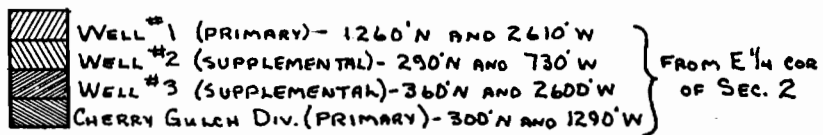 WELL #1 (PRIMARY)- 1260'N AND 2610'W
WELL #2 (SUPPLEMENTAL)- 290'N AND 730'W
WELL #3 (SUPPLEMENTAL)-360'N AND 2600'W
CHERRY GULCH DIV.(PRIMARY)-300'N AND 1290'W
FROM E 1/4 COR
OF SEC. 2